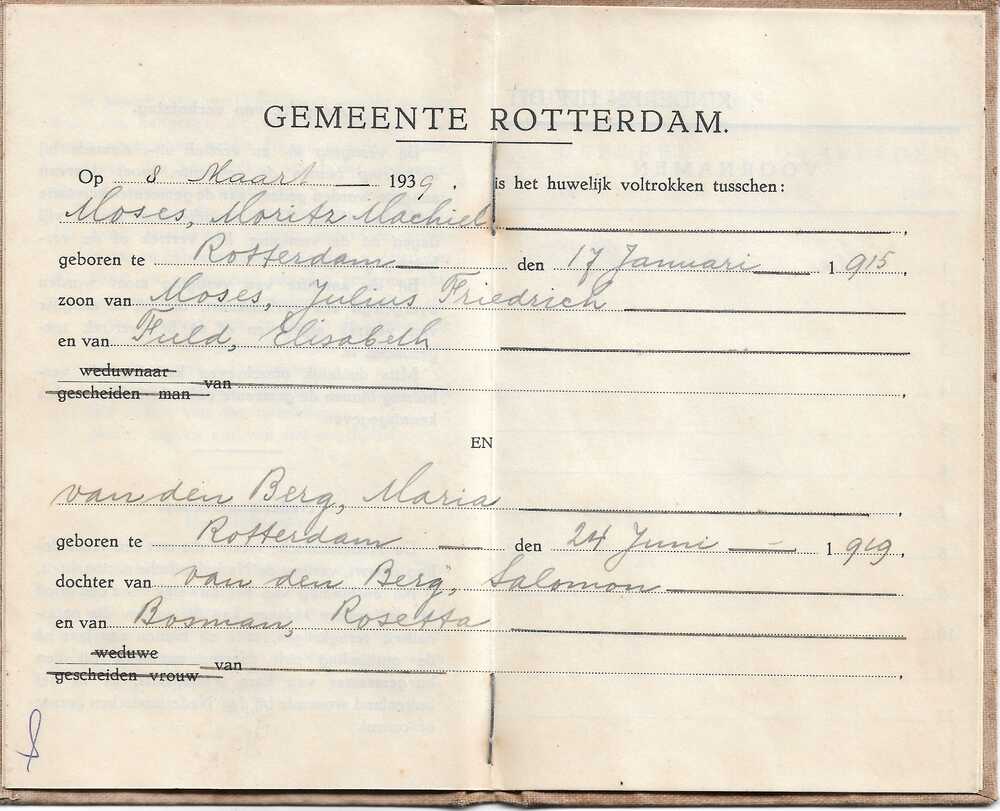 GEMEENTE ROTTERDAM.
Op 8 Maart 1939. is het huwelijk voltrokken tusschen:
Moses, Moritz Machiel,
geboren te Rotterdam den 17 Januari 1915.
zoon van Moses, Julius Friedrich
en van Fuld, Elisabeth
weduwnaar
van
gescheiden man
EN
van den Berg, Maria
geboren te Rotterdam den 24 Juni 1919.
dochter van van den Berg, Salomon
en van Bosman, Rosetta
weduwe
van
gescheiden vrouw